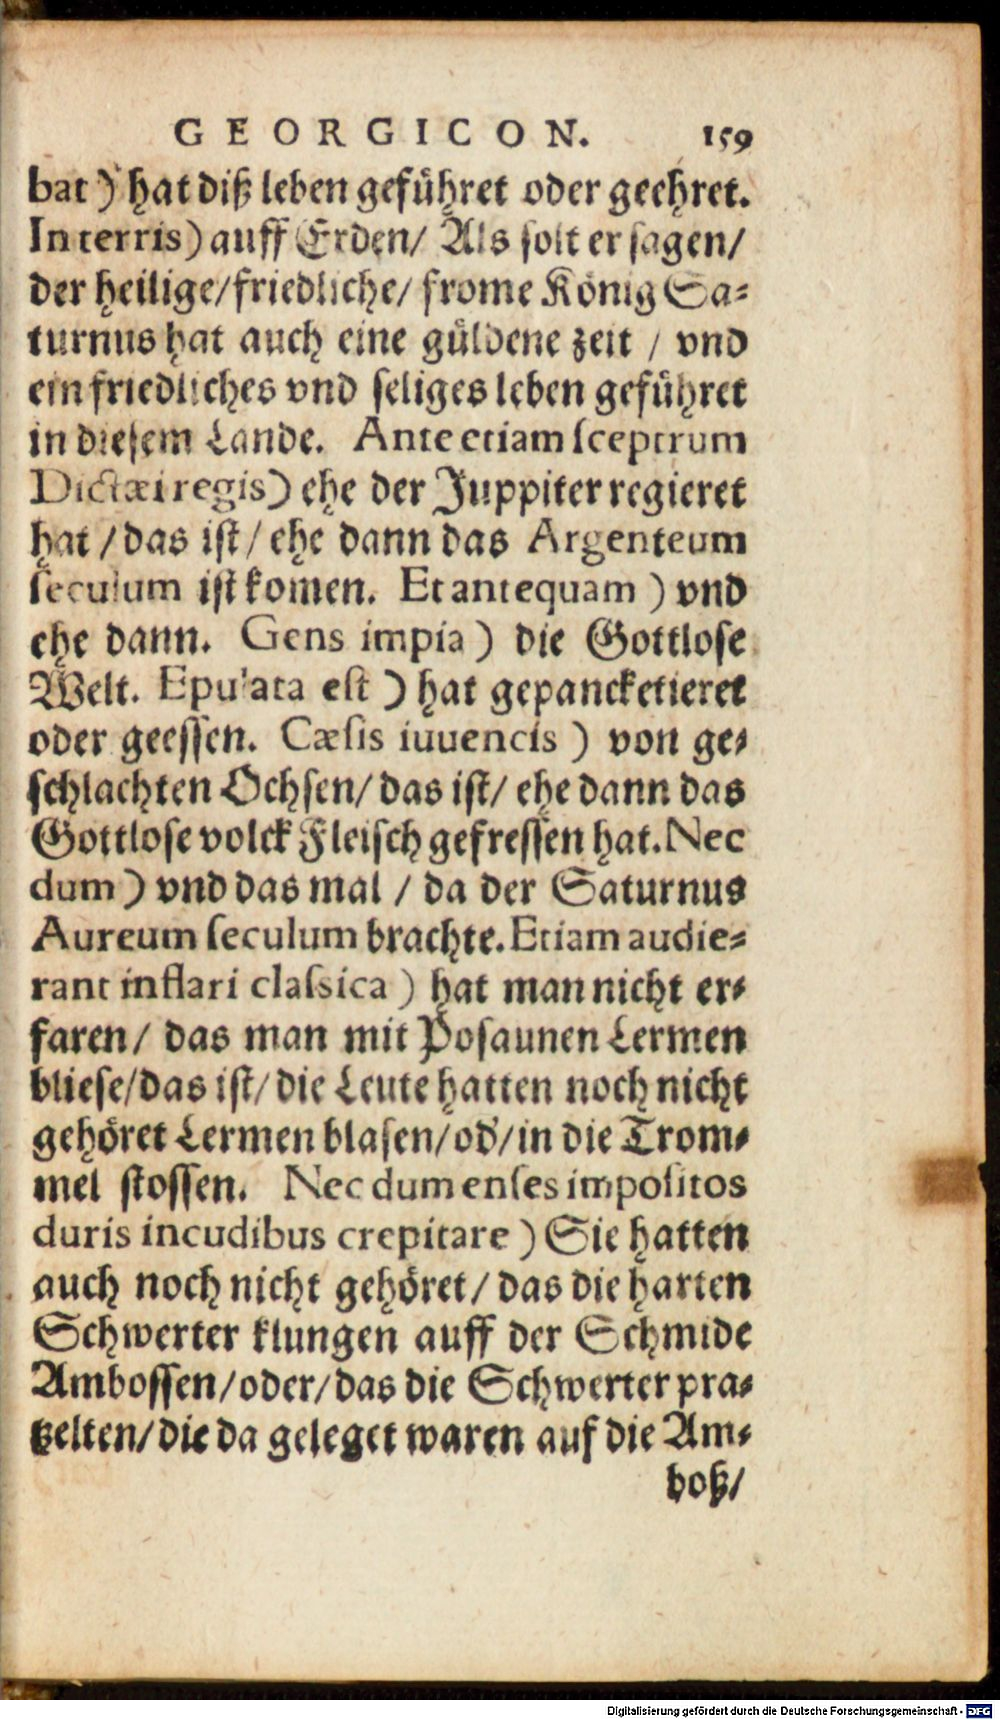 GEORGICON. 159
bat) hat diß leben geführet oder geehret.
In terris) auff Erden/ Als solt er sagen/
der heilige/friedliche/ frome König Sa⸗
turnus hat auch eine güldene zeit / vnd
ein friedliches vnd seliges leben geführet
in diesem Lande. Ante etiam sceptrum
Dictæi regis) ehe der Juppiter regieret
hat /das ist/ ehe dann das Argenteum
seculum ist komen. Et antequam) vnd
ehe dann. Gens impia) die Gottlose
Welt. Epulata est) hat gepancketieret
oder geessen. Cæsis iuuencis) von ge⸗
schlachten Ochsen/ das ist/ ehe dann das
Gottlose volck Fleisch gefressen hat. Nec
dum) vnd das mal / da der Saturnus
Aureum seculum brachte. Etiam audie⸗
rant inflari classica) hat man nicht er⸗
faren/ das man mit Posaunen Lermen
bliese/das ist/ die Leute hatten noch nicht
gehöret Lermen blasen/od'/in die Trom⸗
mel stossen. Nec dum enses impositos
duris incudibus crepitare) Sie hatten
auch noch nicht gehöret/ das die harten
Schwerter klungen auff der Schmide
Ambossen/oder/das die Schwerter pra⸗
tzelten/die da geleget waren auf die Am⸗
boß/
Digitalisierung gefördert durch die Deutsche Forschungsgemeinschaft - DFG